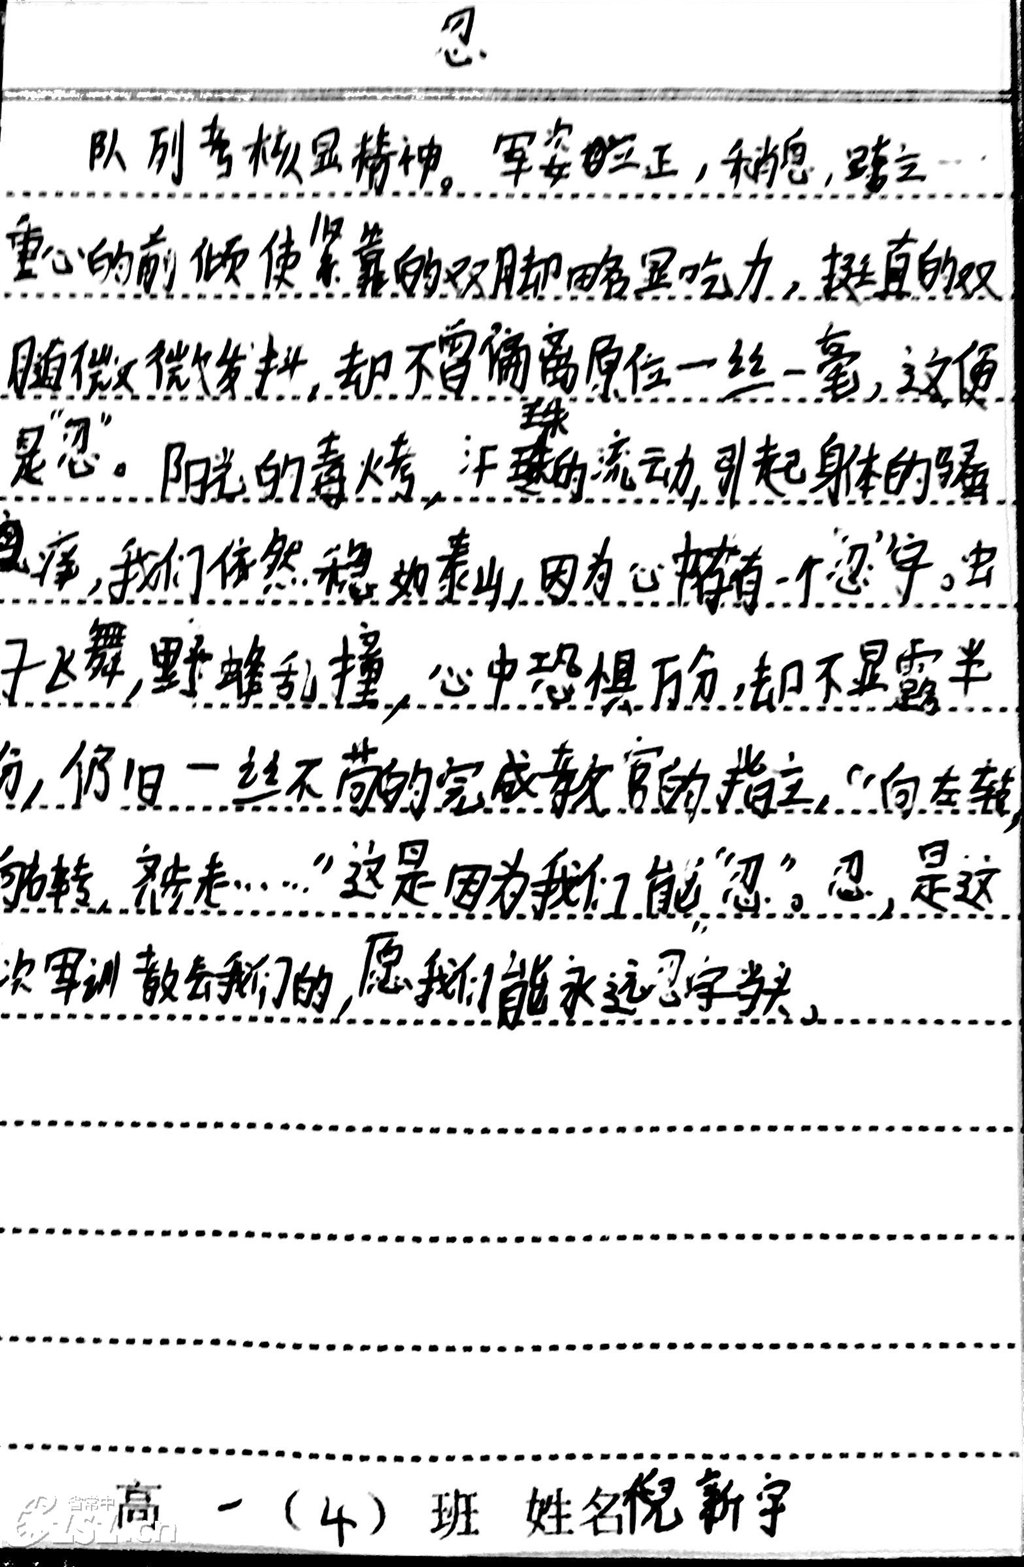 忍
队列考核显精神。军姿立正,稍息,跨立……
重心的前倾使紧靠的双脚略显吃力,挺直的双
腿微微发抖,却不曾偏离原位一丝一毫,这便
是"忍"。阳光的毒烤,汗珠的流动,引起身体的骚
痒,我们依然稳如泰山,因为心中存有一个"忍"字。虫
子飞舞,野蜂乱撞,心中恐惧万分,却不显露半
分,仍旧一丝不苟的完成教官的指立,"向左转,
向右转,齐步走……"这是因为我们能"忍"。忍,是这
次军训教会我们的,愿我们能永远忍字当头。
高一(4)班 姓名倪新宇
省常中